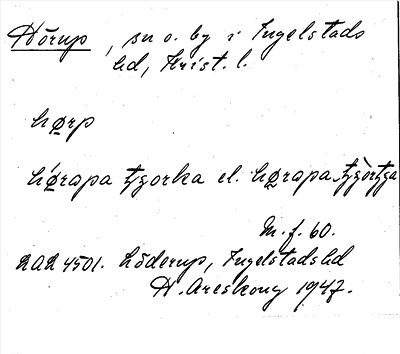 Hörup, sn o. by i Ingelstads
hd, Krist. l.
hørp
hǿrapa tʒorka el. hørapa tʒòrtʒa
M. f. 60.
LAL 4501. Löderup, Ingelstads hd
H. Areskoug 1947.